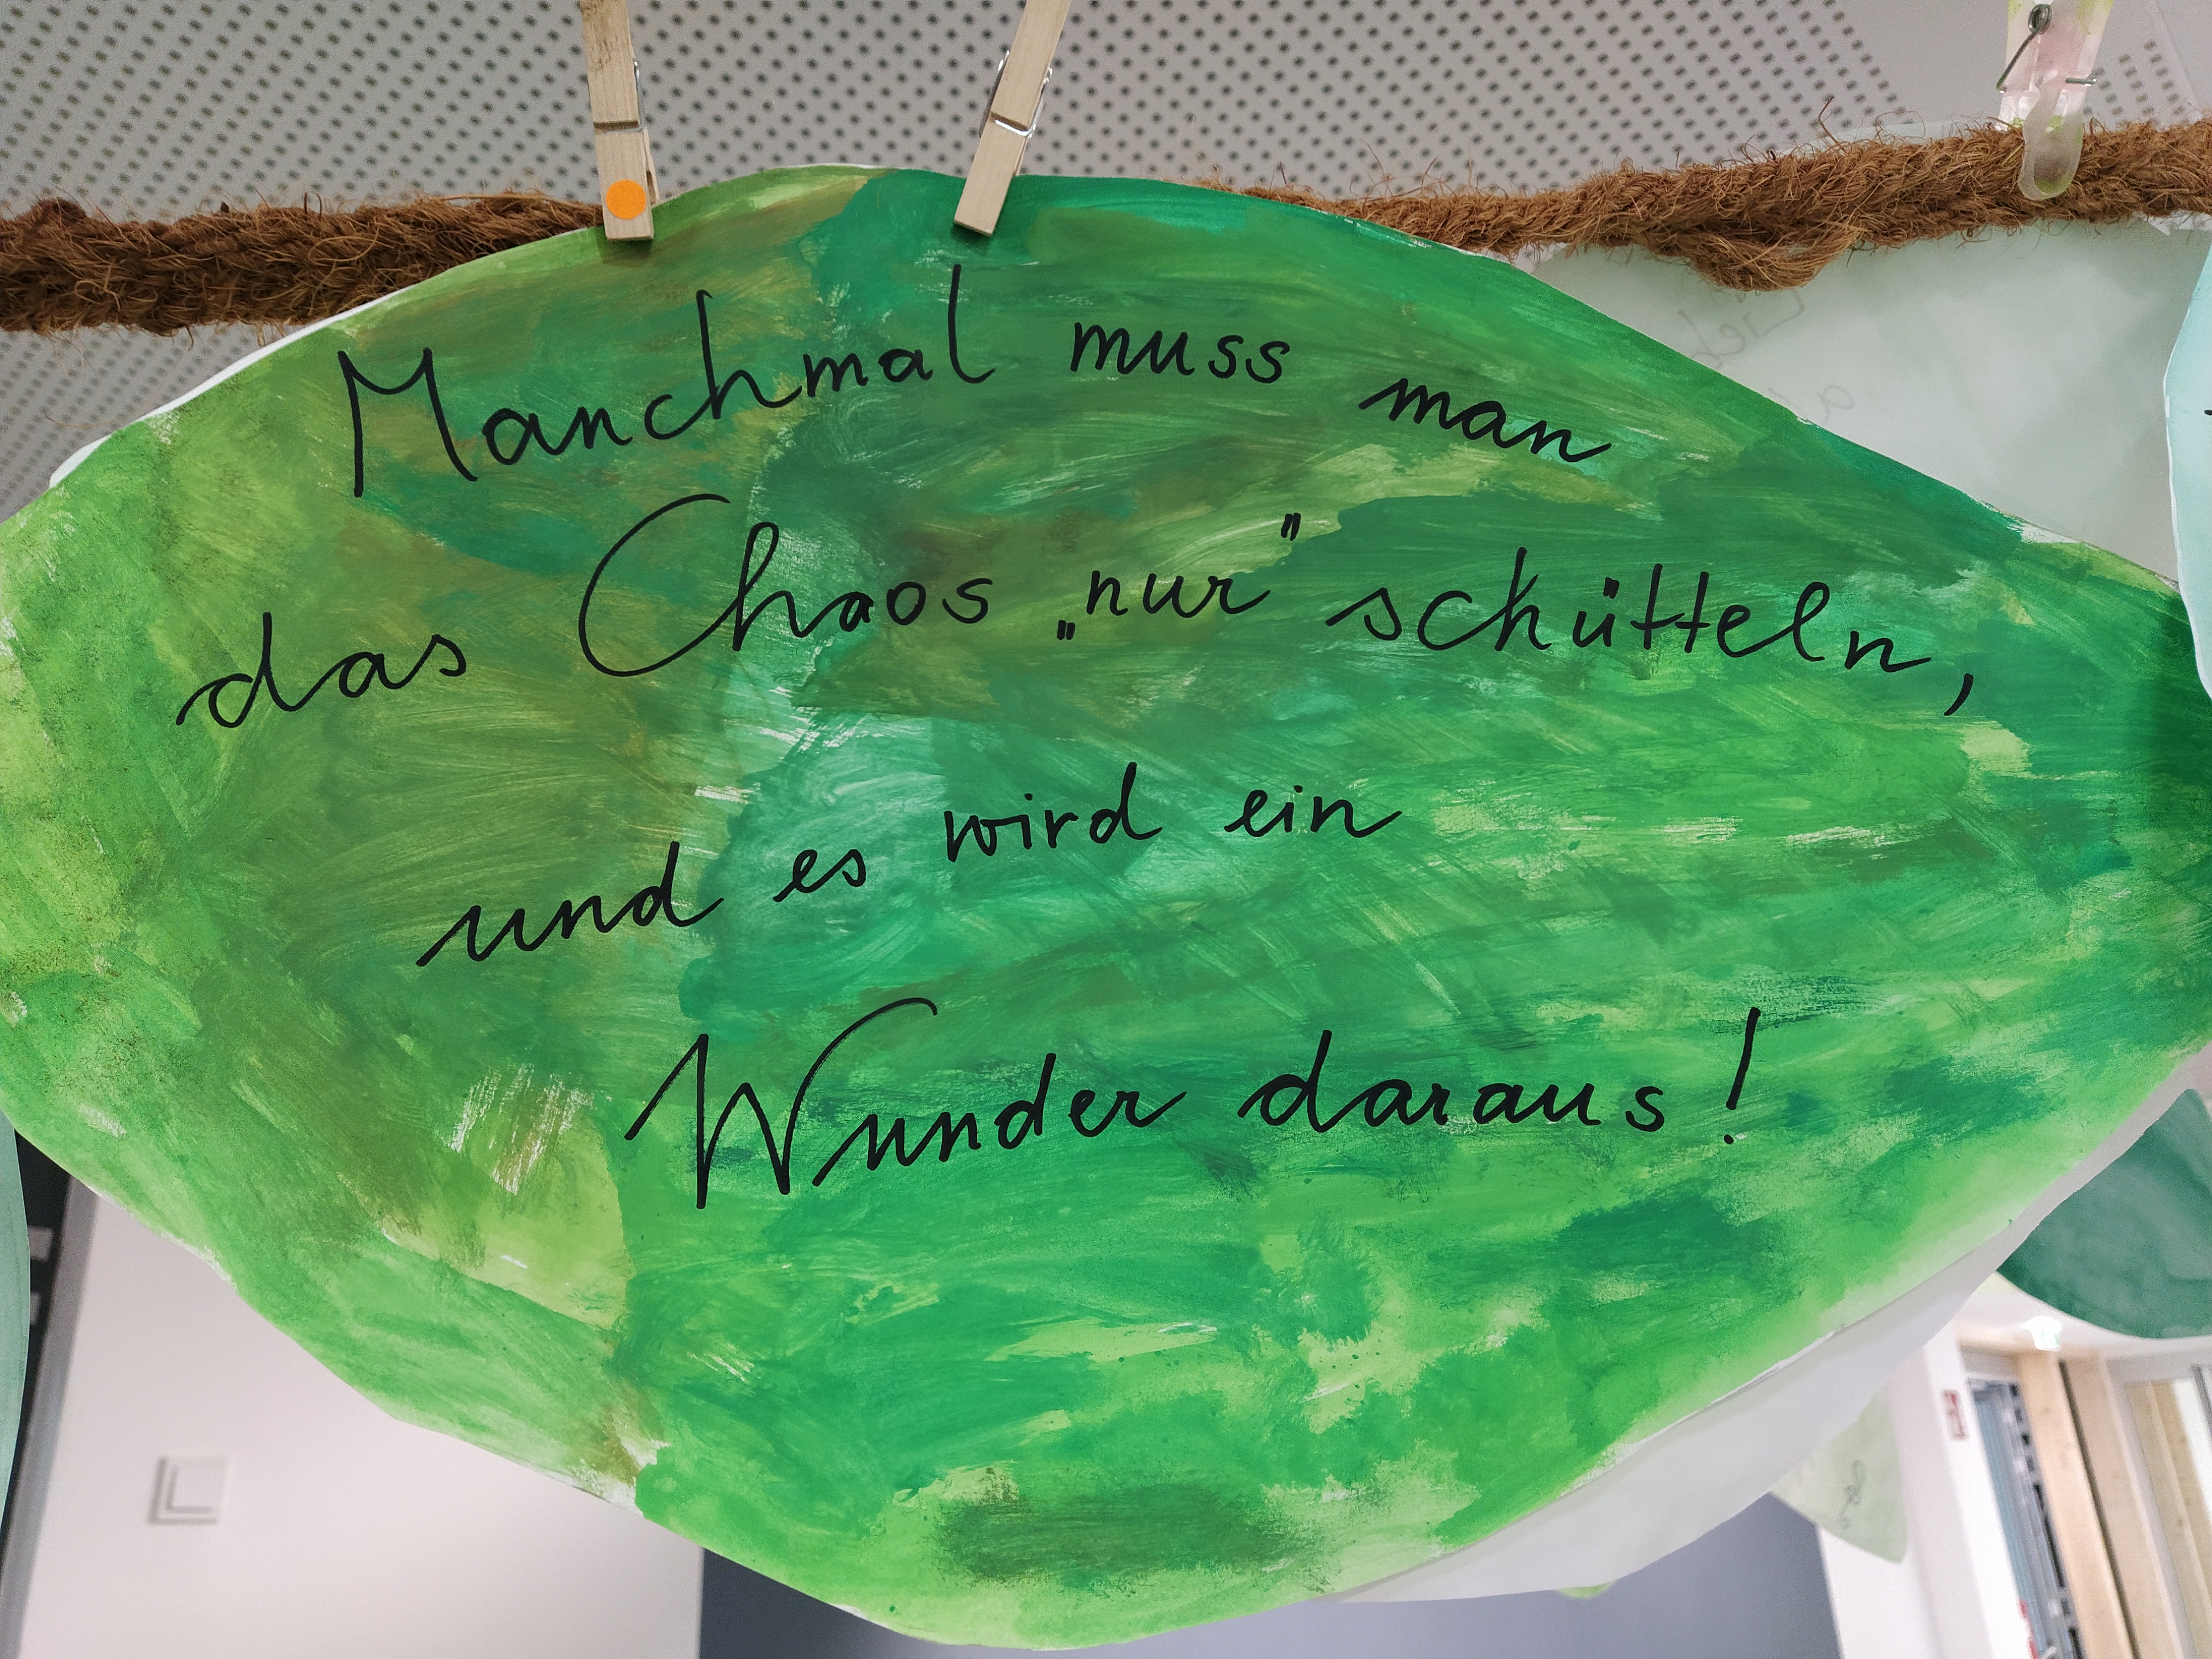 Manchmal muss man
das Chaos „nur" schütteln,
und es wird ein
Wunder daraus!